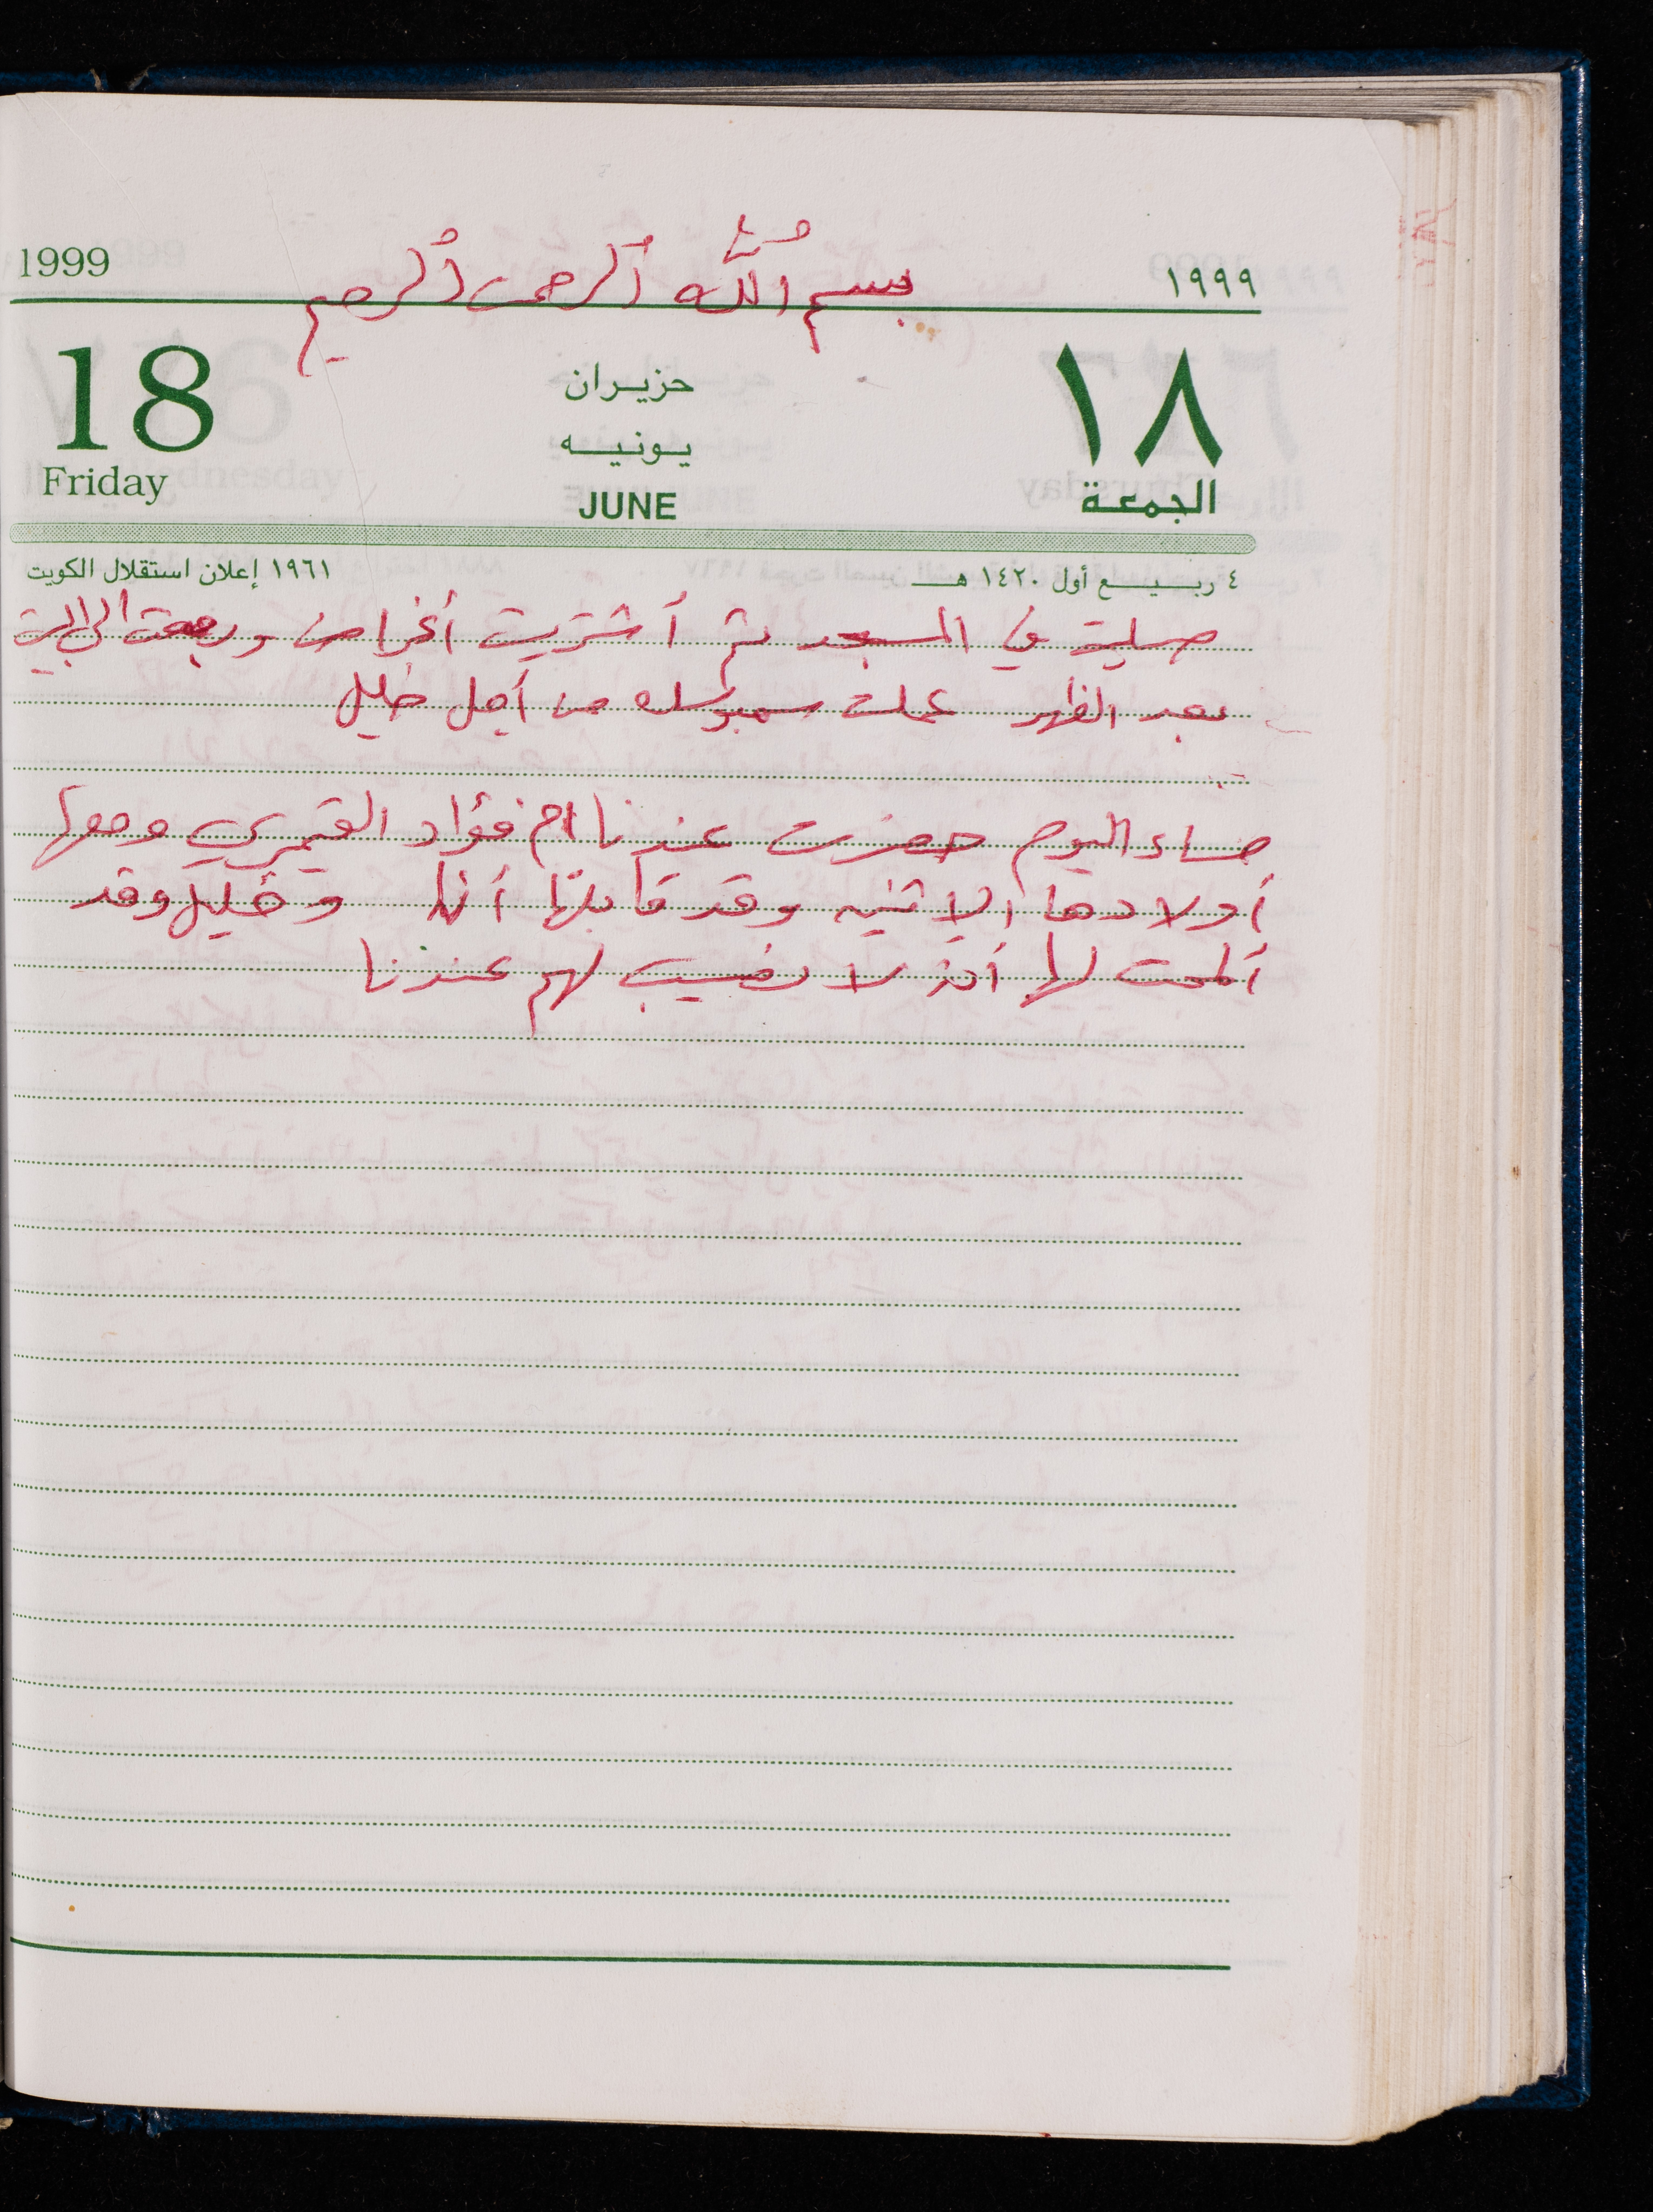 بسم الله الرحمن الرحيم
1999 ١٩٩٩
18 حزيران ١٨
يونيه
Friday JUNE الجمعة
٤ ربيع أول ١٤٢٠ هـ ١٩٦١ إعلان استقلال الكويت
صليت في المسجد ثم أشتريت أغراض ورجعت الى البيت
بعد الظهر عملت سمبوسك من أجل خليل
مساء اليوم حضرت عندنا ام فؤاد القيمري ومعها
أولادها الاثنين وقد قابلتها أنا وخليل وقد
ألمحت لها أنه لا نصيب لهم عندنا